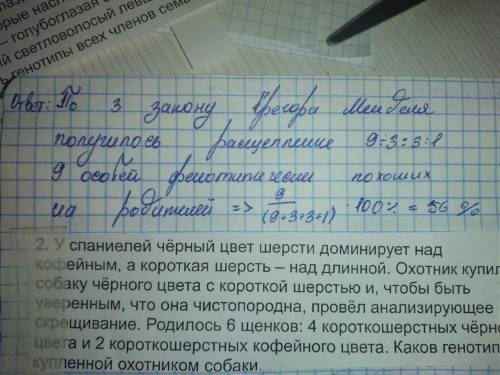 голубоглазая
ий светловолосый левш
ь генотипы всех членов семь
Ответ: По 3 закону Грегора Менделя
получилось расщепление 9:3:3:1
9 особей фенотипически похожих
на родителей => 9/(9+3+3+1) · 100% = 56 %
2. У спаниелей чёрный цвет шерсти доминирует над
кофейным, а короткая шерсть – над длинной. Охотник купил
собаку чёрного цвета с короткой шерстью и, чтобы быть
уверенным, что она чистопородна, провёл анализирующее
скрещивание. Родилось 6 щенков: 4 короткошерстных чёрно
цвета и 2 короткошерстных кофейного цвета. Каков генотип
купленной охотником собаки.